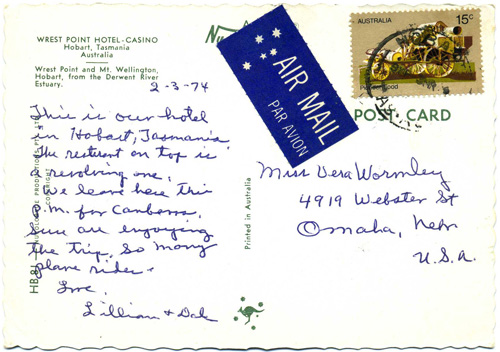 WREST POINT HOTEL-CASINO
Hobart, Tasmania
Australia
Wrest Point and Mt. Wellington,
Hobart, from the Derwent River
Estuary.
2-3-74
This is our hotel
in Hobart, Tasmania
The resturant on top is
a revolving one.
We leave here this
P.M. for Canberra,
sure are enjoying
the trip. So many
plane rides.
Love.
Lillian & Dale
HB81
COPYRIGHT
Printed in Australia
AIR MAIL
PAR AVION
AUSTRALIA
15c
POST CARD
Miss Vera Wormley
4919 Webster St
Omaha, Nebr
U.S.A.